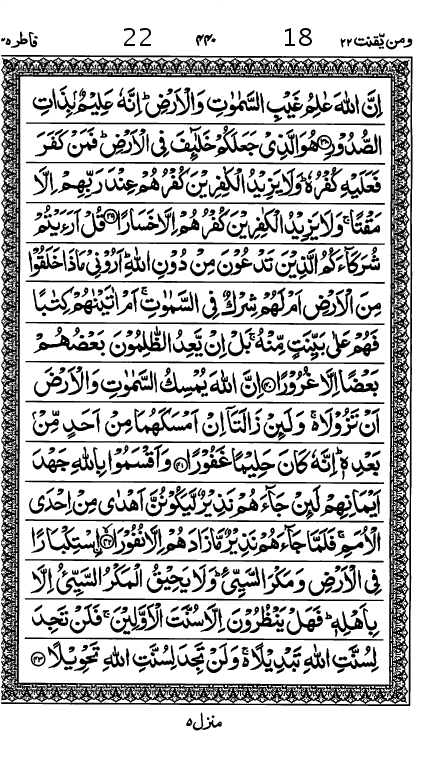 ومن يقنت ٢٢ 18 ٤٤٠ 22 فاطر ٣٥
اِنَّ اللّٰهَ عٰلِمُ غَيْبِ السَّمٰوٰتِ وَالْاَرْضِ ؕ اِنَّهٗ عَلِيْمٌۢ بِذَاتِ
الصُّدُوْرِ ﴿۳۸﴾ هُوَ الَّذِىْ جَعَلَكُمْ خَلٰٓئِفَ فِى الْاَرْضِ ؕ فَمَنْ كَفَرَ
فَعَلَيْهِ كُفْرُهٗ ؕ وَلَا يَزِيْدُ الْكٰفِرِيْنَ كُفْرُهُمْ عِنْدَ رَبِّهِمْ اِلَّا
مَقْتًا ۚ وَلَا يَزِيْدُ الْكٰفِرِيْنَ كُفْرُهُمْ اِلَّا خَسَارًا ﴿۳۹﴾ قُلْ اَرَءَيْتُمْ
شُرَكَآءَكُمُ الَّذِيْنَ تَدْعُوْنَ مِنْ دُوْنِ اللّٰهِ ؕ اَرُوْنِىْ مَاذَا خَلَقُوْا
مِنَ الْاَرْضِ اَمْ لَهُمْ شِرْكٌ فِى السَّمٰوٰتِ ۚ اَمْ اٰتَيْنٰهُمْ كِتٰبًا
فَهُمْ عَلٰى بَيِّنَتٍ مِّنْهُ ۚ بَلْ اِنْ يَّعِدُ الظّٰلِمُوْنَ بَعْضُهُمْ
بَعْضًا اِلَّا غُرُوْرًا ﴿۴۰﴾ اِنَّ اللّٰهَ يُمْسِكُ السَّمٰوٰتِ وَالْاَرْضَ
اَنْ تَزُوْلَا ۬ۚ وَلَئِنْ زَالَتَاۤ اِنْ اَمْسَكَهُمَا مِنْ اَحَدٍ مِّنْۢ
بَعْدِهٖ ؕ اِنَّهٗ كَانَ حَلِيْمًا غَفُوْرًا ﴿۴۱﴾ وَاَقْسَمُوْا بِاللّٰهِ جَهْدَ
اَيْمَانِهِمْ لَئِنْ جَآءَهُمْ نَذِيْرٌ لَّيَكُوْنُنَّ اَهْدٰى مِنْ اِحْدَى
الْاُمَمِ ۚ فَلَمَّا جَآءَهُمْ نَذِيْرٌ مَّا زَادَهُمْ اِلَّا نُفُوْرًا ﴿۴۲﴾ اۨسْتِكْبَارًا
فِى الْاَرْضِ وَمَكْرَ السَّيِّئِ ؕ وَلَا يَحِيْقُ الْمَكْرُ السَّيِّئُ اِلَّا
بِاَهْلِهٖ ؕ فَهَلْ يَنْظُرُوْنَ اِلَّا سُنَّتَ الْاَوَّلِيْنَ ۚ فَلَنْ تَجِدَ
لِسُنَّتِ اللّٰهِ تَبْدِيْلًا ۬ۚ وَلَنْ تَجِدَ لِسُنَّتِ اللّٰهِ تَحْوِيْلًا ﴿۴۳﴾
منزل ٥